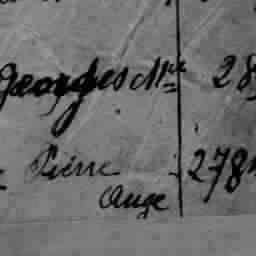 Georges Mle 28
Pierre 278
Ange